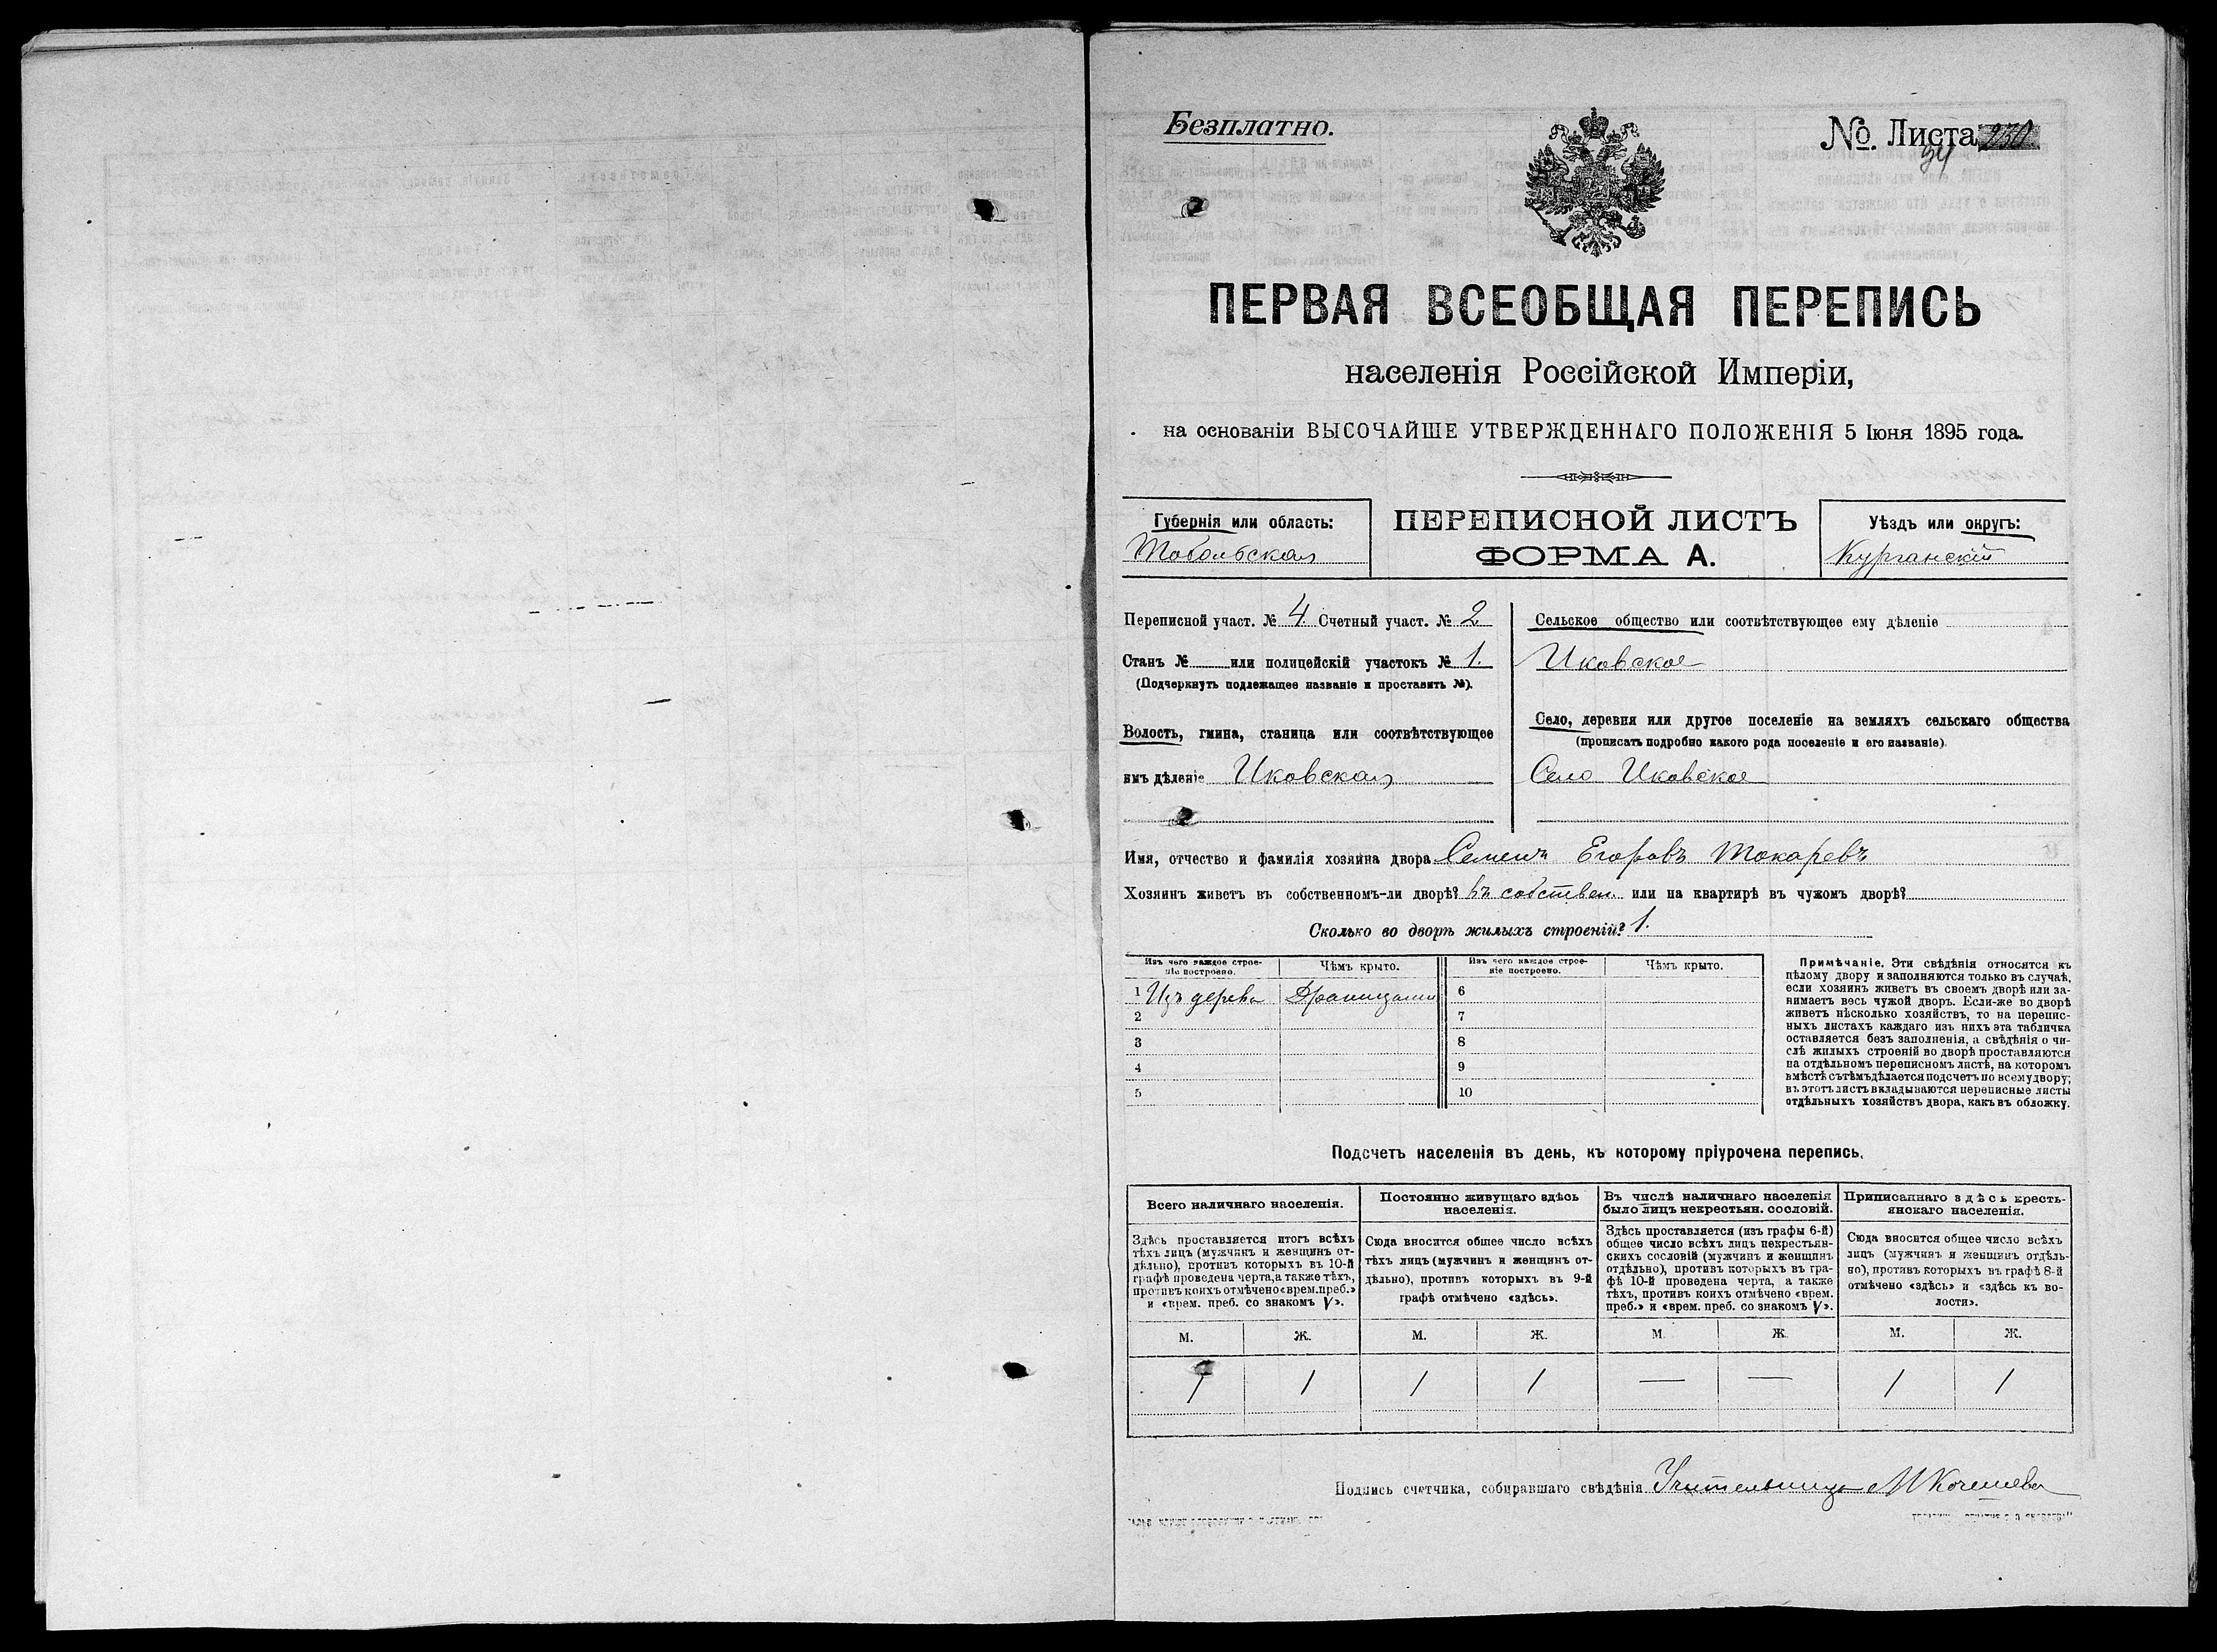 Безплатно.
№ Листа 230.
34
ПЕРВАЯ ВСЕОБЩАЯ ПЕРЕПИСЬ
населенія Россійской Имперіи,
на основаніи ВЫСОЧАЙШЕ УТВЕРЖДЕННАГО ПОЛОЖЕНІЯ 5 Іюня 1895 года.
Губернія или область:
Тобольская
ПЕРЕПИСНОЙ ЛИСТЪ
ФОРМА А.
Уѣздъ или округъ:
Курганскій
Переписной участ. № 4. Счетный участ. № 2
Станъ № или полицейскій участокъ № 1.
(Подчеркнуть подлежащее названіе и проставить №).
Волость, гмина, станица или соотвѣтствующее
имъ дѣленіе Иковская
Сельское общество или соотвѣтствующее ему дѣленіе
Иковское
Село, деревня или другое поселеніе на земляхъ сельскаго общества
(прописать подробно какого рода поселеніе и его названіе)
Село Иковское
Имя, отчество и фамилія хозяина двора Семенъ Егоровъ Токаревъ
Хозяинъ живетъ въ собственномъ-ли дворѣ? въ собствен. или на квартирѣ въ чужомъ дворѣ?
Сколько во дворѣ жилыхъ строеній? 1.
Изъ чего каждое строе-
ніе построено.
Чѣмъ крыто.
Изъ чего каждое строе-
ніе построено.
Чѣмъ крыто.
1 Изъ дерева Драницами 6
2 7
3 8
4 9
5 10
Примѣчаніе. Эти свѣдѣнія относятся къ
цѣлому двору и заполняются только въ случаѣ,
если хозяинъ живетъ въ своемъ дворѣ или за-
нимаетъ весь чужой дворъ. Если-же во дворѣ
живетъ нѣсколько хозяйствъ, то на перепис-
ныхъ листахъ каждаго изъ нихъ эта табличка
оставляется безъ заполненія, а свѣдѣнія о чи-
слѣ жилыхъ строеній во дворѣ проставляются
на отдѣльномъ переписномъ листѣ, на которомъ
вмѣстѣ съ тѣмъ дѣлается подсчетъ по всему двору;
въ этотъ листъ вкладываются переписные листы
отдѣльныхъ хозяйствъ двора, какъ въ обложку.
Подсчетъ населенія въ день, къ которому пріурочена перепись.
Всего наличнаго населенія.
Здѣсь проставляется итогъ всѣхъ
тѣхъ лицъ (мужчинъ и женщинъ от-
дѣльно), противъ которыхъ въ 10-й
графѣ проведена черта, а также тѣхъ,
противъ коихъ отмѣчено «врем. преб.»
и «врем. преб. со знакомъ V».
Постоянно живущаго здѣсь
населенія.
Сюда вносится общее число всѣхъ
тѣхъ лицъ (мужчинъ и женщинъ от-
дѣльно), противъ которыхъ въ 9-й
графѣ отмѣчено «здѣсь».
Въ числѣ наличнаго населенія
было лицъ некрестьян. сословій.
Здѣсь проставляется (изъ графы 6-й)
общее число всѣхъ лицъ некрестьян-
скихъ сословій (мужчинъ и женщинъ
отдѣльно), противъ которыхъ въ гра-
фѣ 10-й проведена черта, а также
тѣхъ, противъ коихъ отмѣчено «врем.
преб.» и «врем. преб. со знакомъ V».
Приписаннаго здѣсь кресть-
янскаго населенія.
Сюда вносится общее число всѣхъ
лицъ (мужчинъ и женщинъ отдѣль-
но), противъ которыхъ въ графѣ 8-й
отмѣчено «здѣсь» и «здѣсь къ во-
лости».
М. Ж. М. Ж. М. Ж. М. Ж.
1 1 1 1 — — 1 1
Подпись счетчика, собиравшаго свѣдѣнія Учительница